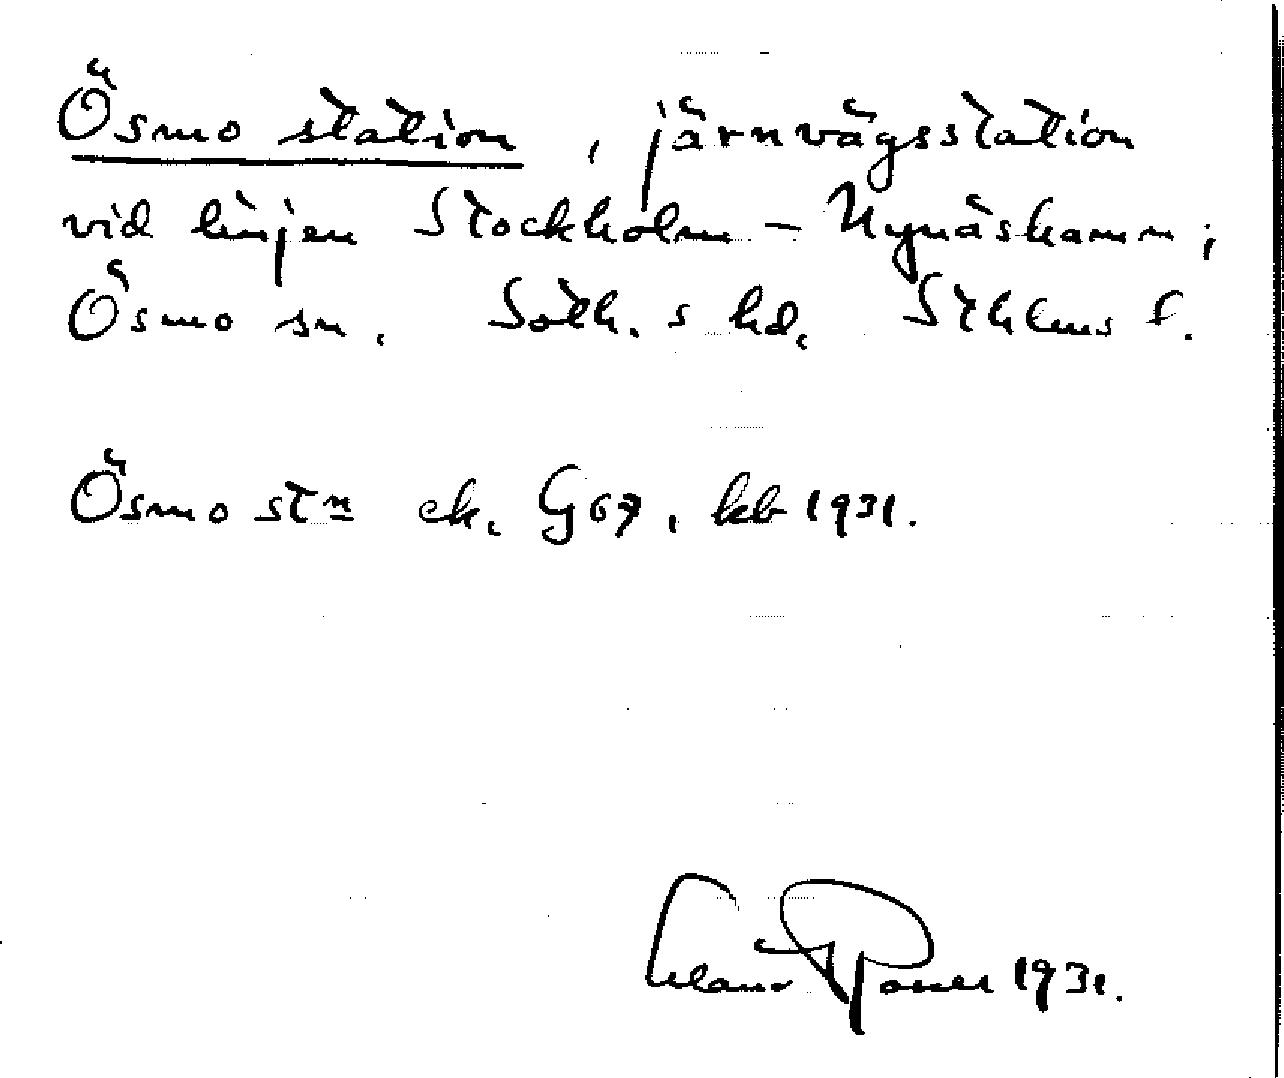 Ösmo station, järnvägsstation
vid linjen Stockholm – Nynäshamn;
Ösmo sn. Soth. s hd. Sthlms l.
Ösmo stn ek. G67, kb 1931.
Posse 1931.